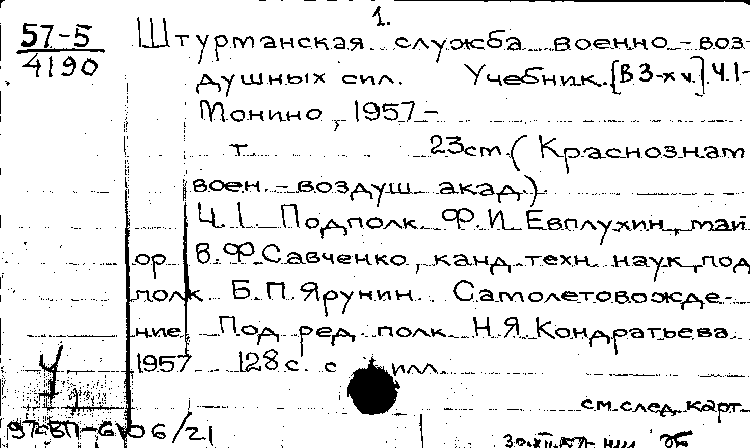 1.
57-5
4190
Штурманская служба военно-воз-
душных сил. Учебник. [В 3-х ч.] Ч.1-
Монино, 1957-
т. 23см. (Краснознам
воен.-воздуш. акад.)
Ч.1. Подполк. Ф.И.Евплухин, май
ор В.Ф.Савченко, канд. техн. наук, под
полк. Б.П.Ярунин. Самолетовожде-
ние. Под ред. полк. Н.Я.Кондратьева
1957 128 с. с илл.
см. след. карт.